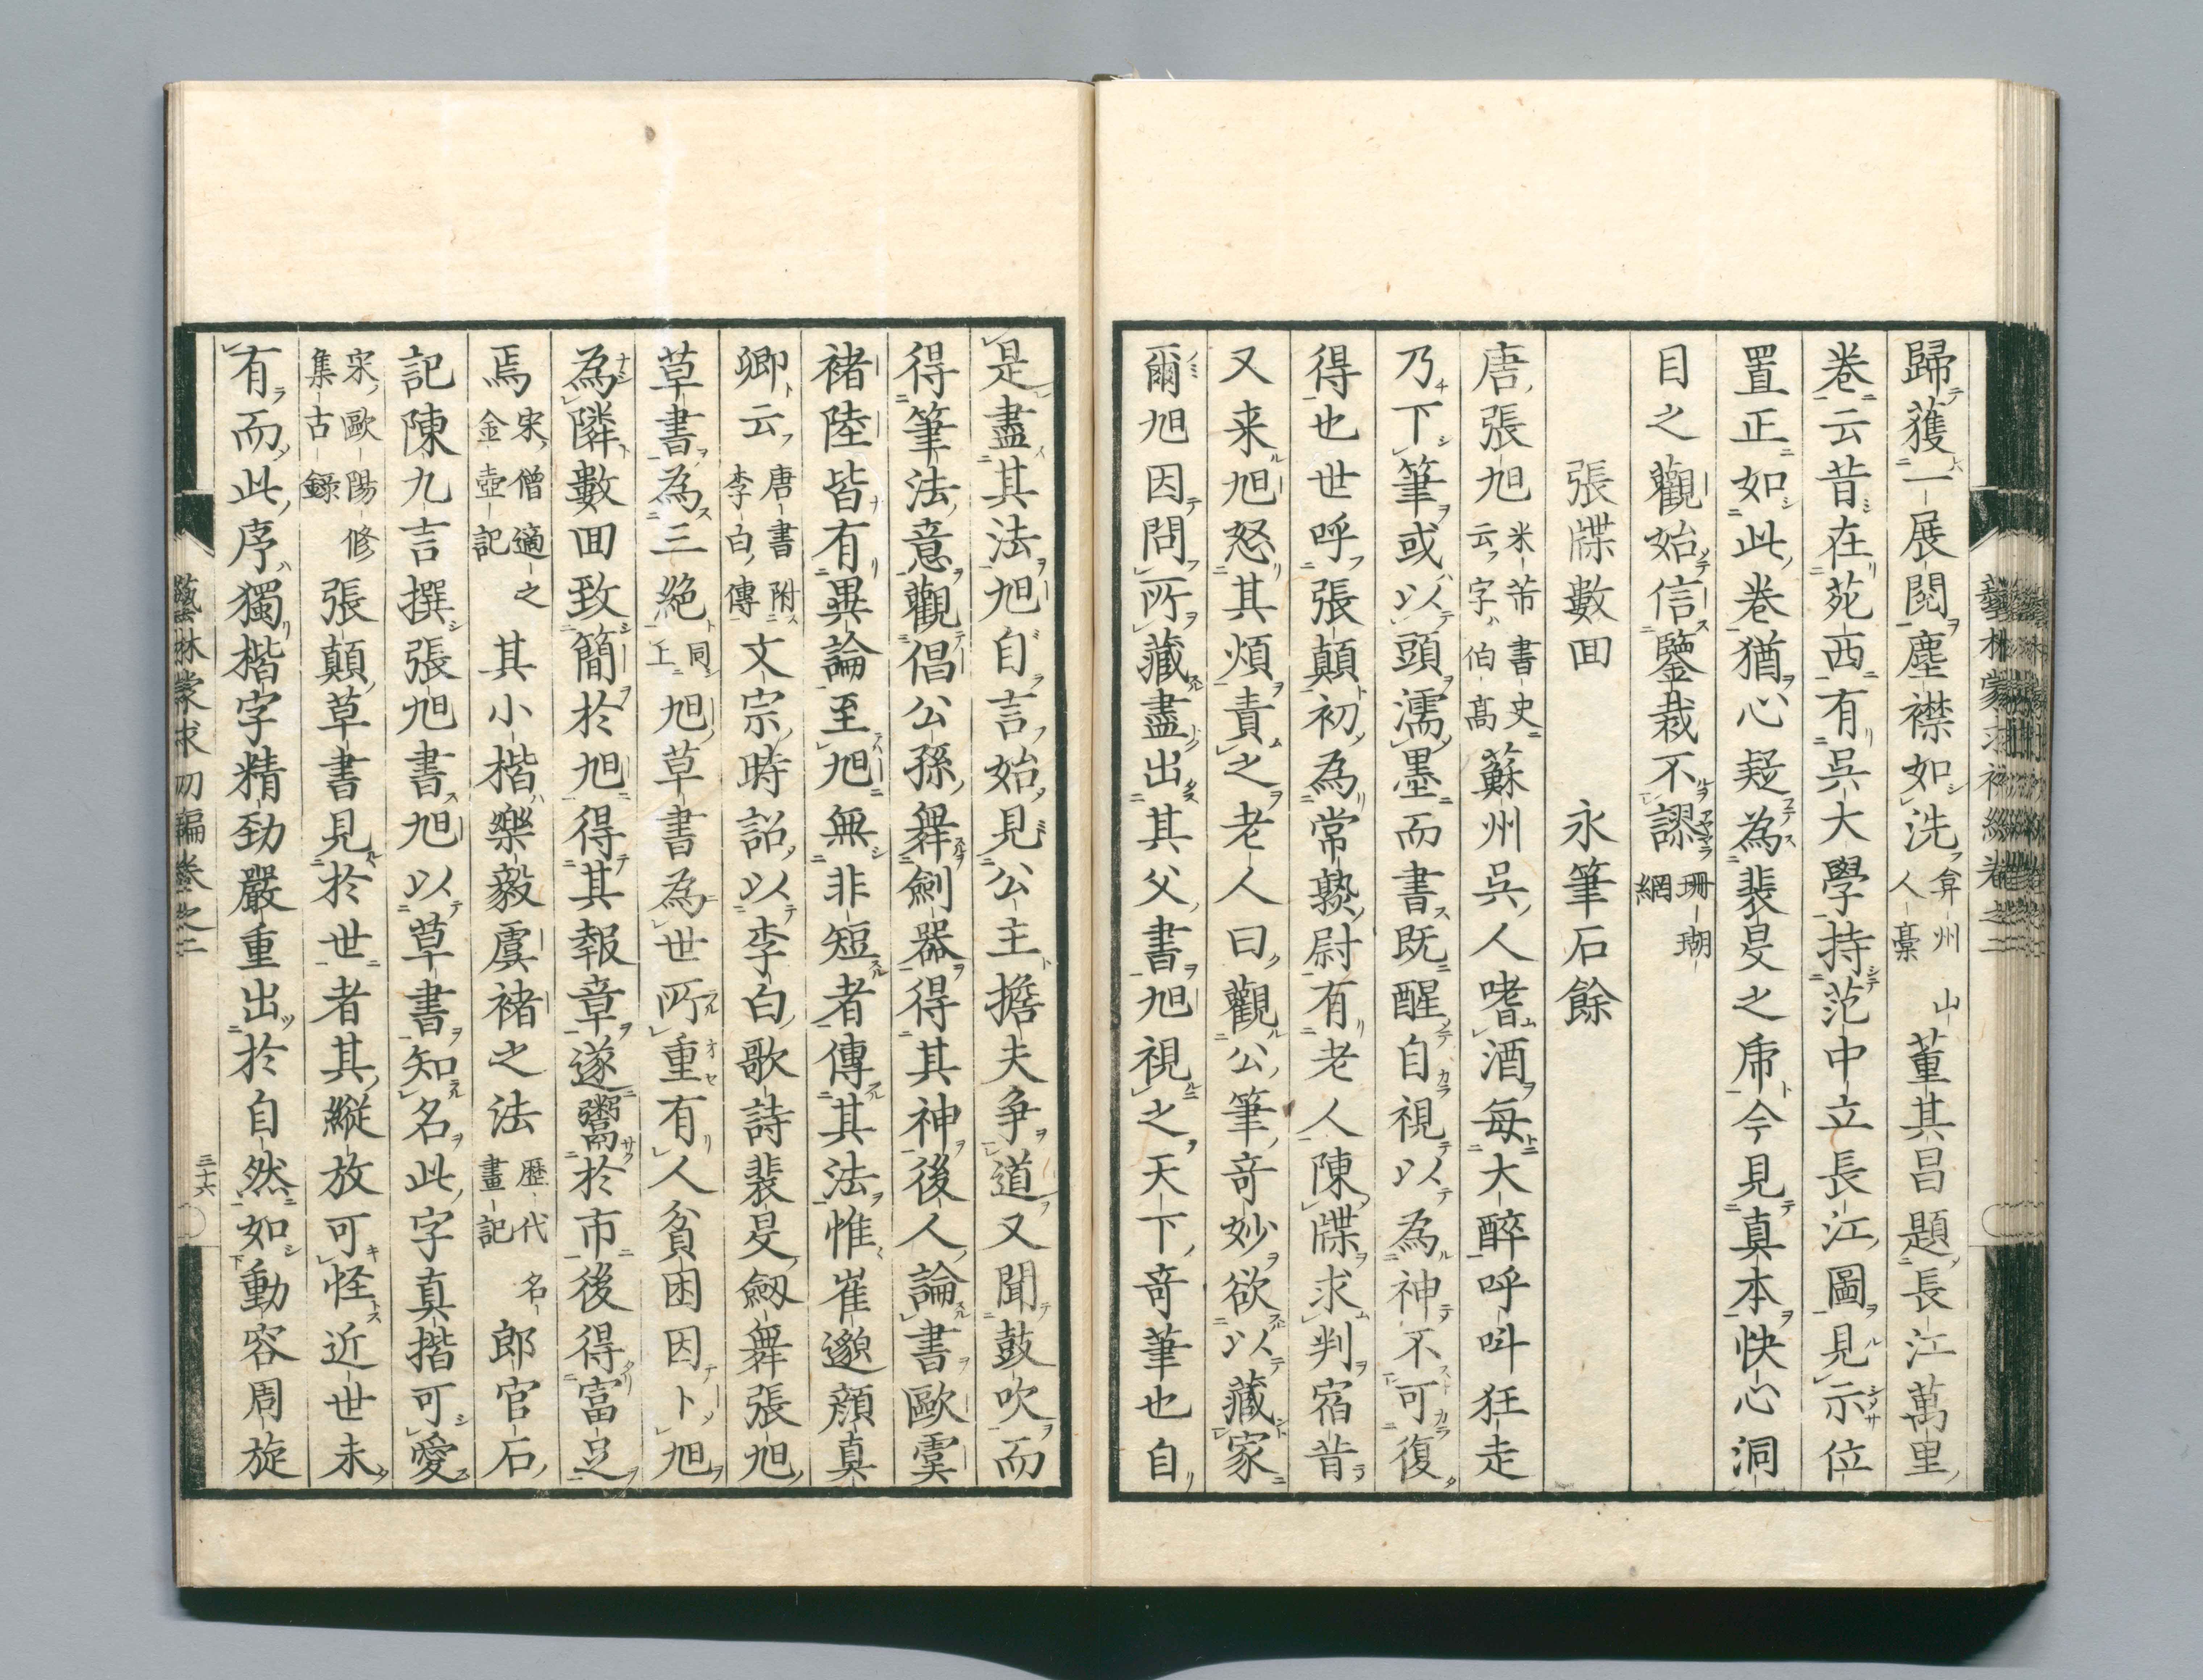 歸獲一展閱塵襟如洗弇州山人藁董其昌題長江萬里
卷云昔在苑西有吳大學持范中立長江圖見示位
置正如此卷猶心疑為裴旻之席今見真本快心洞
目之觀始信鑒裁不謬珊瑚網
張牒數回　永筆石餘
唐張旭米芾書史云字伯高蘇州吳人嗜酒每大醉呼叫狂走
乃下筆或以頭濡墨而書既醒自視以為神不可復
得也世呼張顛初為常熟尉有老人陳牒求判宿昔
又来旭怒其煩責之老人曰觀公筆奇妙欲以藏家
爾旭因問所藏盡出其父書旭視之天下奇筆也自
是盡其法旭自言始見公主擔夫争道又聞鼓吹而
得筆法意觀倡公孫舞劍器得其神後人論書歐虞
褚陸皆有異論至旭無非短者傳其法惟崔邈顏真
卿云唐書附李白傳文宗時詔以李白歌詩裴旻劔舞張旭
草書為三絶同上旭草書為世所重有人貧困因卜旭
為隣數回致簡於旭得其報章遂鬻於市後得富足
焉宋僧適之金壺記其小楷樂毅虞褚之法歷代名畫記郎官石
記陳九言撰張旭書旭以草書知名此字真揩可愛
宋歐陽修集古錄張顛草書見於世者其縱放可怪近世未
有而此序獨楷字精勁嚴重出於自然如動容周旋
藝林蒙求初編卷之二
三十六